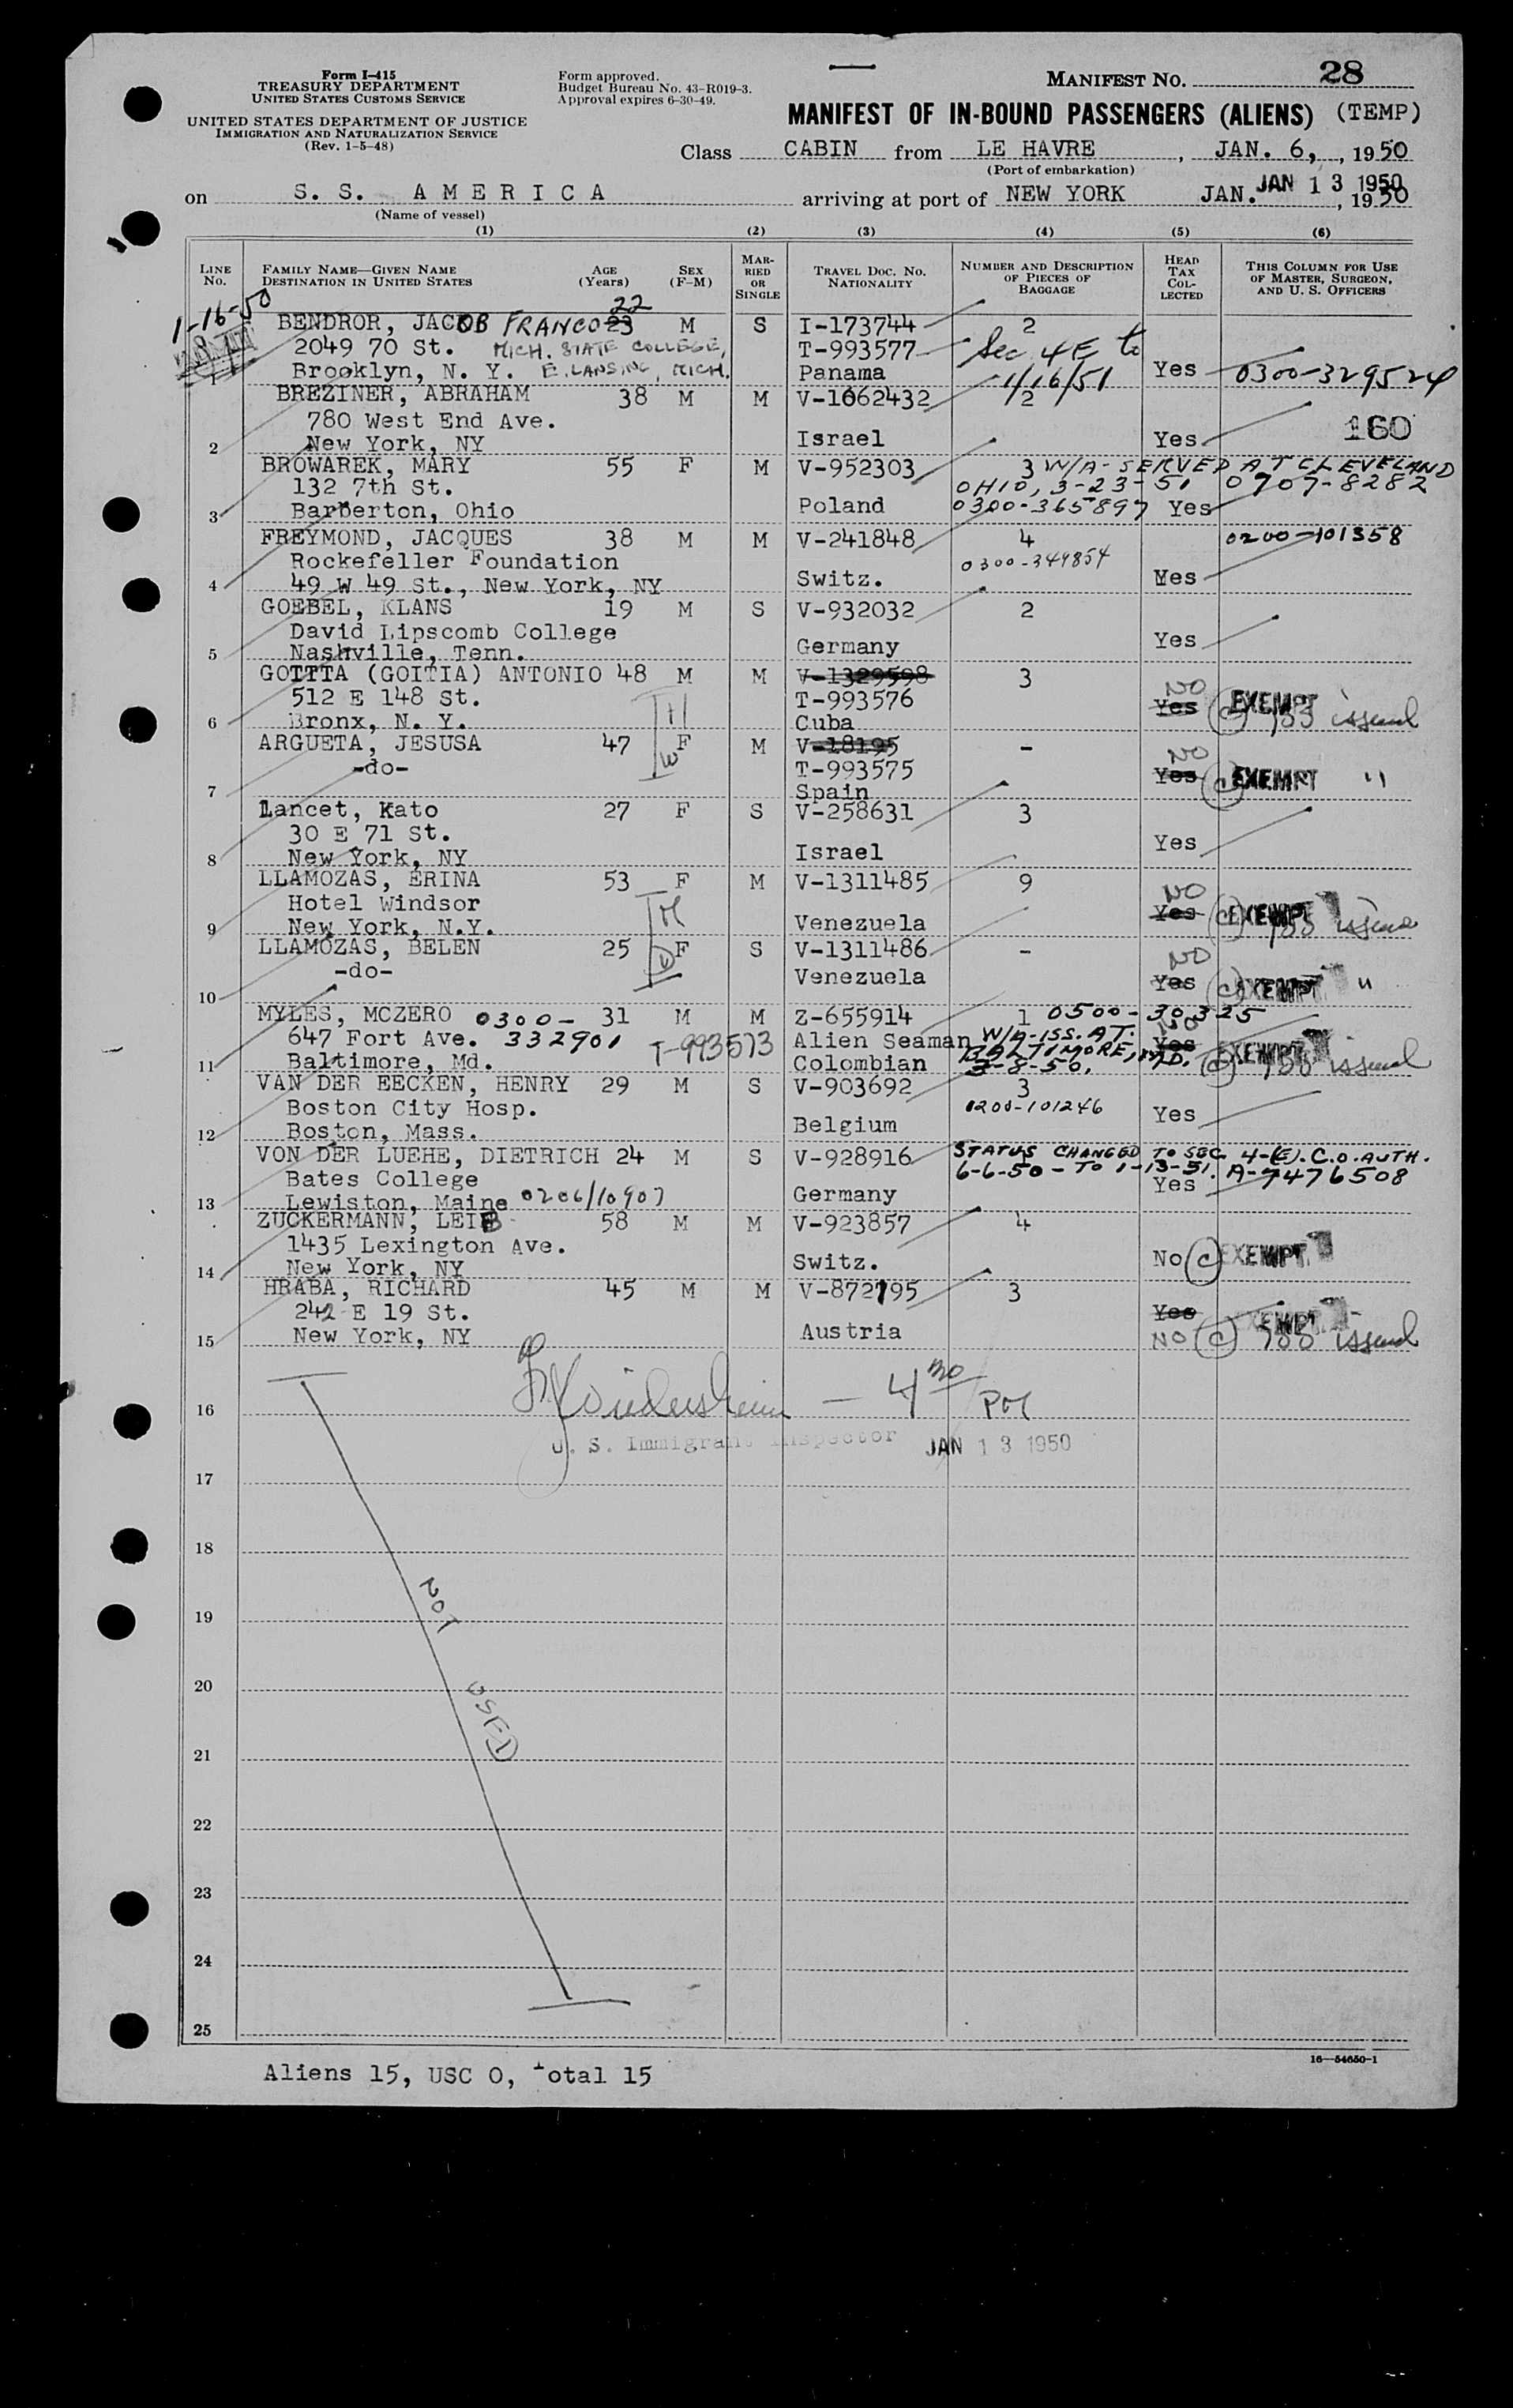 Form I-415
TREASURY DEPARTMENT
UNITED STATES CUSTOMS SERVICE
UNITED STATES DEPARTMENT OF JUSTICE
IMMIGRATION AND NATURALIZATION SERVICE
(Rev. 1-5-48)
Form approved.
Budget Bureau No. 43-R019-3.
Approval expires 6-30-49.
MANIFEST NO. 28
MANIFEST OF IN-BOUND PASSENGERS (ALIENS) (TEMP)
Class CABIN from LE HAVRE, JAN. 6, , 1950
(Port of embarkation)
on S. S. AMERICA arriving at port of NEW YORK JAN. JAN 13 1950, 1950
(Name of vessel)
(1) (2) (3) (4) (5) (6)
LINE No. FAMILY NAME—GIVEN NAME DESTINATION IN UNITED STATES AGE (Years) SEX (F-M) MARRIED OR SINGLE TRAVEL DOC. NO. NATIONALITY NUMBER AND DESCRIPTION OF PIECES OF BAGGAGE HEAD TAX COLLECTED THIS COLUMN FOR USE OF MASTER, SURGEON, AND U. S. OFFICERS
1-16-50
22
BENDROR, JACOB FRANCO 23 M S I-173744 2
2049 70 St. MICH. STATE COLLEGE, T-993577 Sec 4E to
1 Brooklyn, N. Y. E. LANSING, MICH. Panama 1/16/51 Yes 0300-329524
BREZINER, ABRAHAM 38 M M V-1062432 2
780 West End Ave. 160
2 New York, NY Israel Yes
BROWAREK, MARY 55 F M V-952303 3 W/A-SERVED AT CLEVELAND
132 7th St. OHIO, 3-23-51 0707-8282
3 Barberton, Ohio Poland 0300-365897 Yes
FREYMOND, JACQUES 38 M M V-241848 4 0200-101358
Rockefeller Foundation 0300-349854
4 49 W 49 St., New York, NY Switz. Yes
GOEBEL, KLANS 19 M S V-932032 2
David Lipscomb College Yes
5 Nashville, Tenn. Germany
GOTTTA (GOITIA) ANTONIO 48 M M V-1329598 3
512 E 148 St. H T-993576 NO Yes (C) EXEMPT 
6 Bronx, N. Y. Cuba issued
ARGUETA, JESUSA 47 F M V-18195 - NO
-do- W T-993575 Yes (C) EXEMPT "
7 Spain
Lancet, Kato 27 F S V-258631 3
30 E 71 St. Yes
8 New York, NY Israel
LLAMOZAS, ERINA 53 F M V-1311485 9 NO
Hotel Windsor M Yes (C) EXEMPT
9 New York, N.Y. Venezuela
LLAMOZAS, BELEN 25 F S V-1311486 - NO
-do- D Venezuela Yes (C) EXEMPT "
10
MYLES, MCZERO 0300- 31 M M Z-655914 1 0500-30325
647 Fort Ave. 332901 T-993573 Alien Seaman W/A-ISS. AT. NO Yes EXEMPT
11 Baltimore, Md. Colombian BALTIMORE, MD. 3-8-50. (C) issued
VAN DER EECKEN, HENRY 29 M S V-903692 3
Boston City Hosp. 0200-101246 Yes
12 Boston, Mass. Belgium
VON DER LUEHE, DIETRICH 24 M S V-928916 STATUS CHANGED TO SEC. 4-(E). C.O. AUTH.
Bates College 6-6-50 - TO 1-13-51. A-7476508
13 Lewiston, Maine 0206/10907 Germany Yes
ZUCKERMANN, LEIB 58 M M V-923857 4
1435 Lexington Ave. No (C) EXEMPT
14 New York, NY Switz.
HRABA, RICHARD 45 M M V-872795 3
242 E 19 St. Yes EXEMPT
15 New York, NY Austria NO (C) issued
16 — 4 30 PM
U. S. Immigrant Inspector JAN 13 1950
17
18
NOT
19
20
USED
21
22
23
24
25
16—54650-1
Aliens 15, USC 0, Total 15